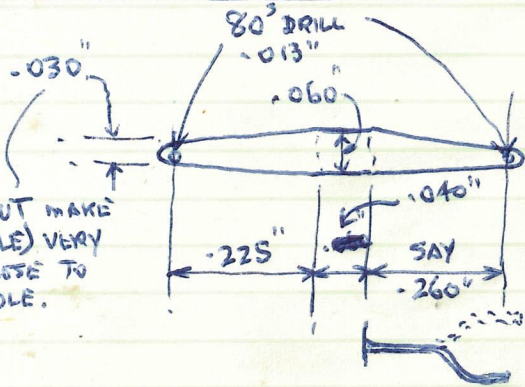 80's DRILL
.013"
.030"
.060"
.040"
MAKE
VERY
TO
.225"
SAY
.260"